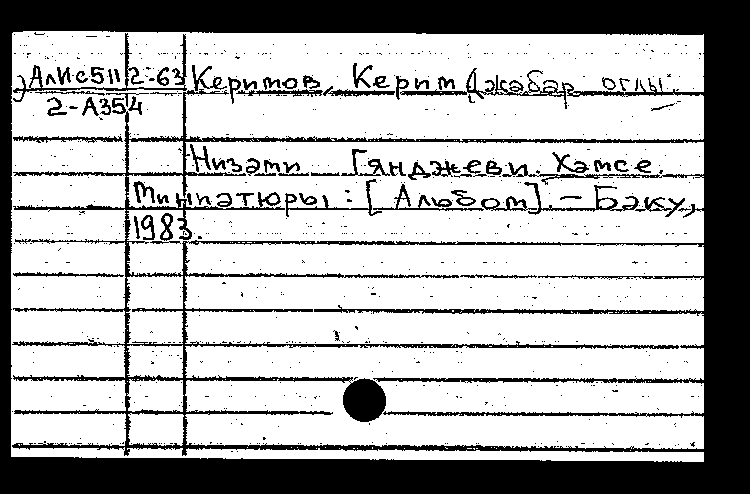 АлИс511 2-63 Керимов, Керим Джабар оглы.
2-А354
Низами Гянджеви. Хамсе.
Миниатюры: [Альбом]. - Баку,
1983.